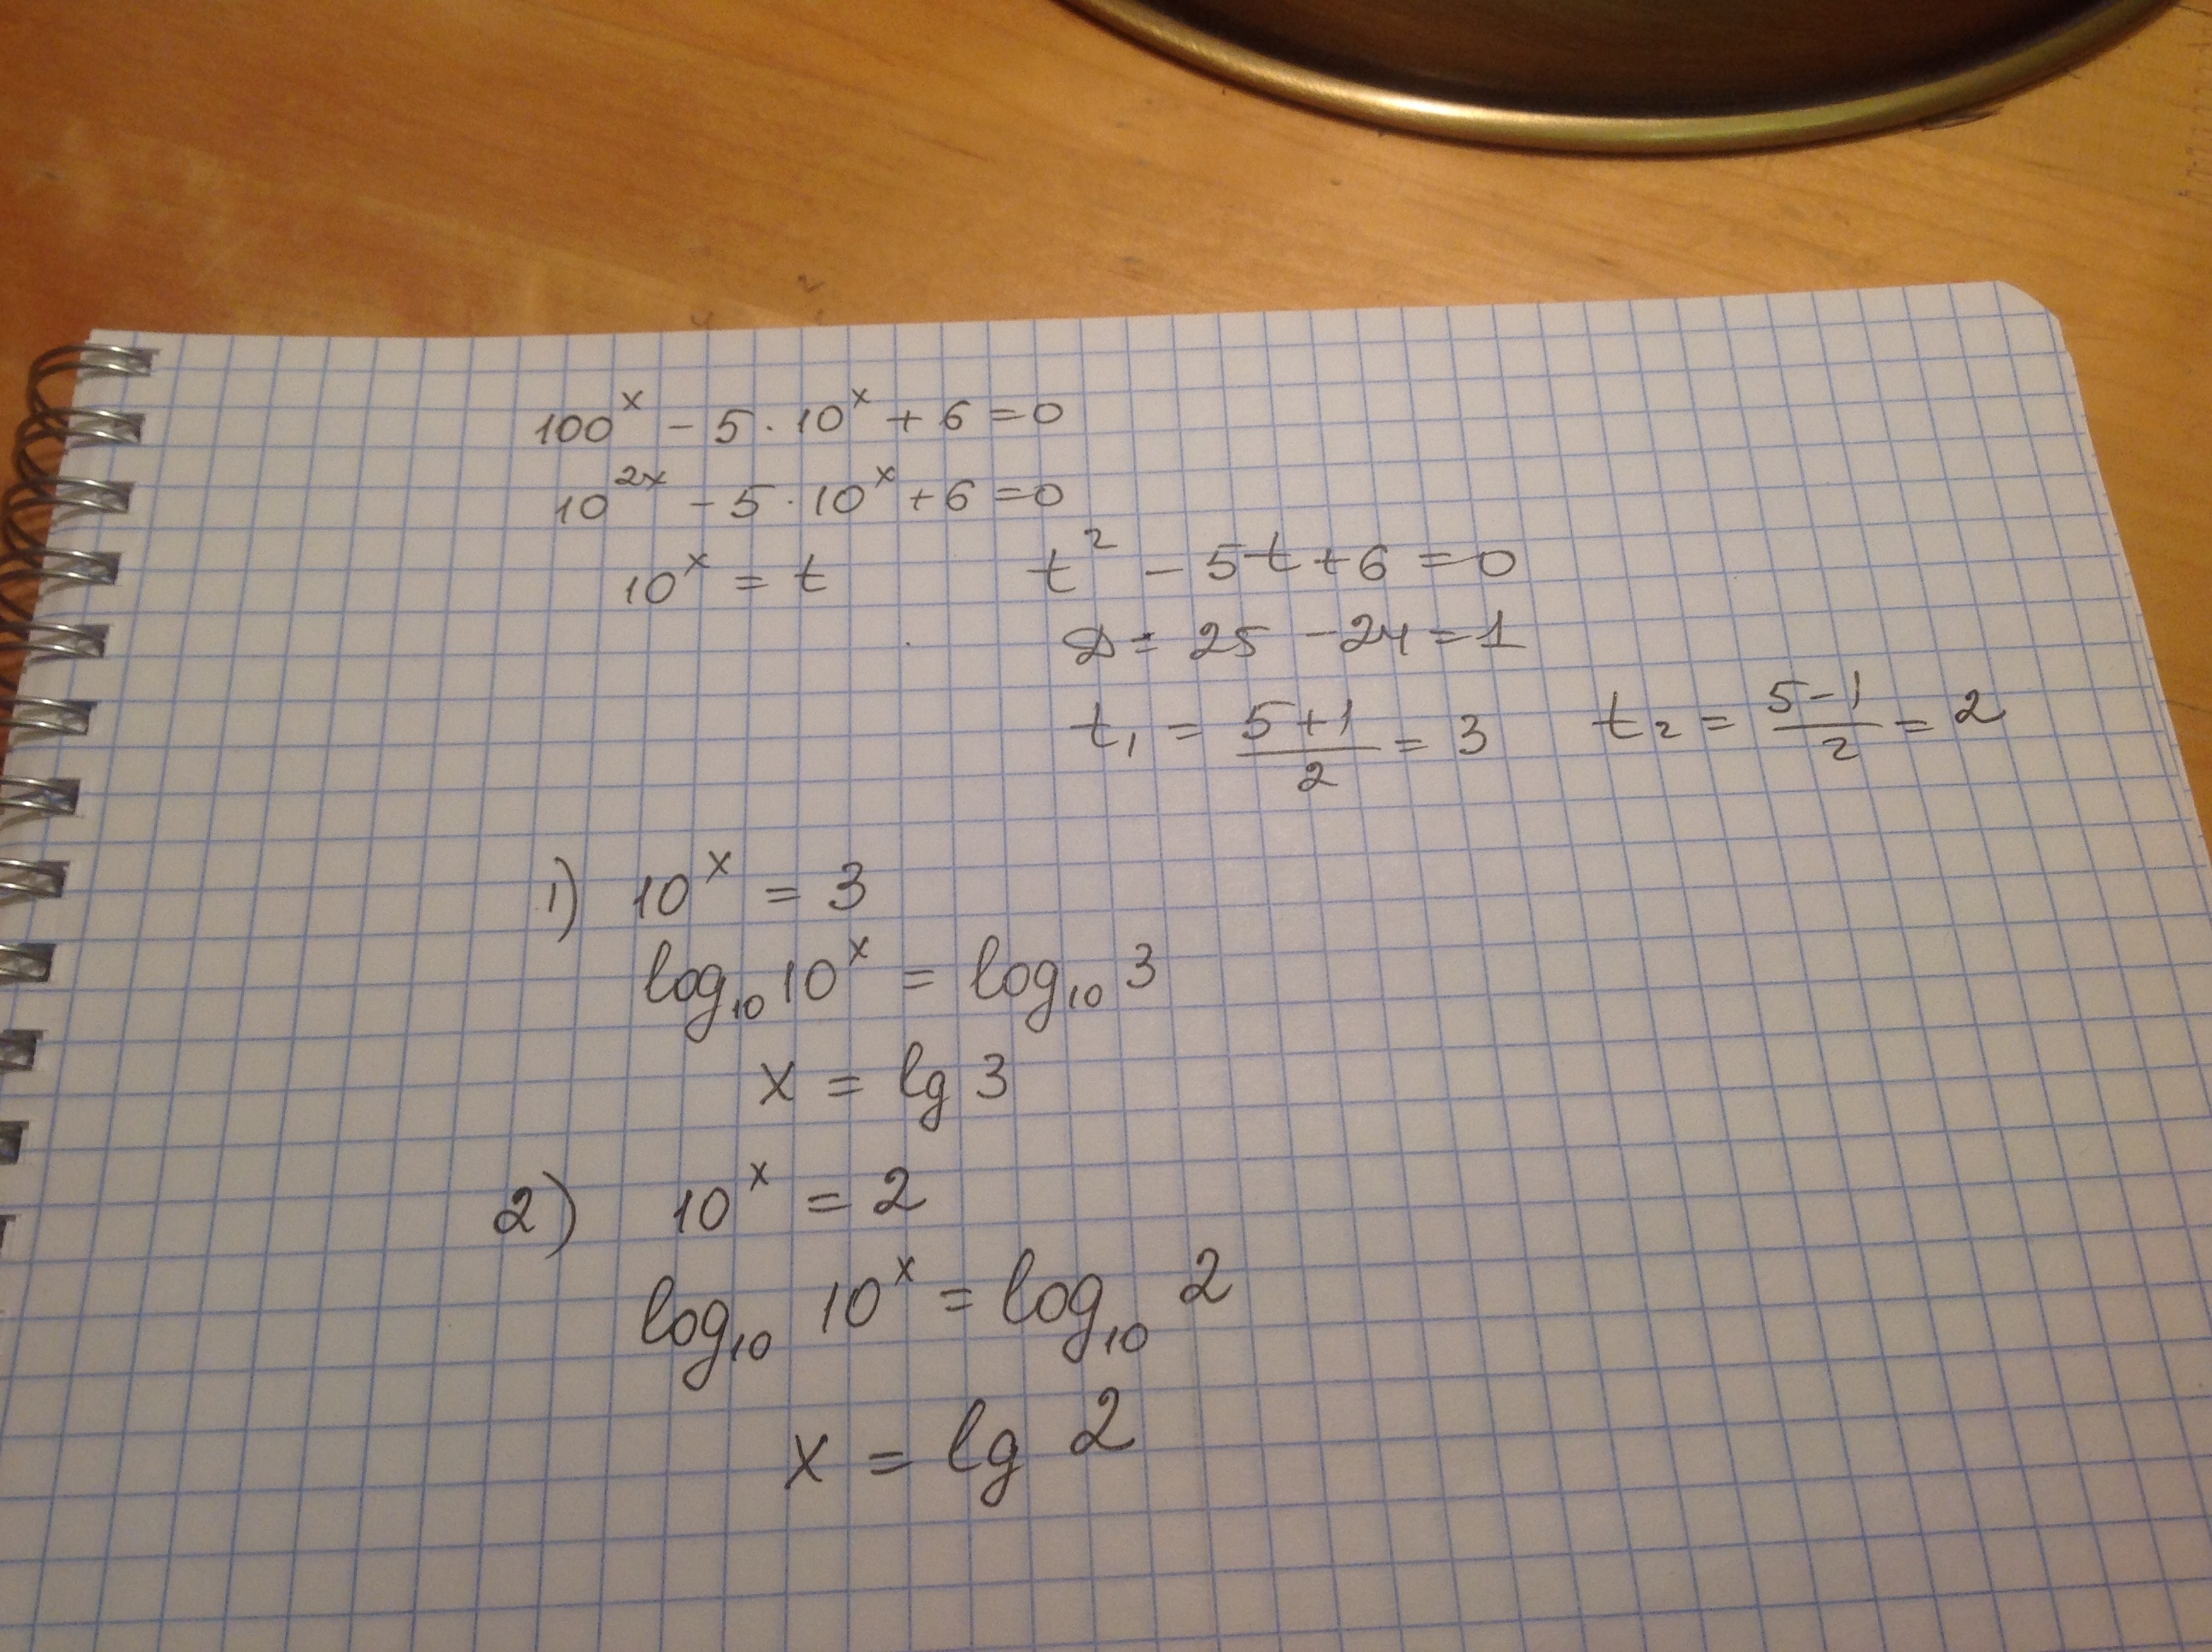 100^x - 5 · 10^x + 6 = 0
10^2x - 5 · 10^x + 6 = 0
10^x = t    t^2 - 5t + 6 = 0
D = 25 - 24 = 1
t₁ = (5+1)/2 = 3    t₂ = (5-1)/2 = 2
1) 10^x = 3
log₁₀ 10^x = log₁₀ 3
x = lg 3
2) 10^x = 2
log₁₀ 10^x = log₁₀ 2
x = lg 2